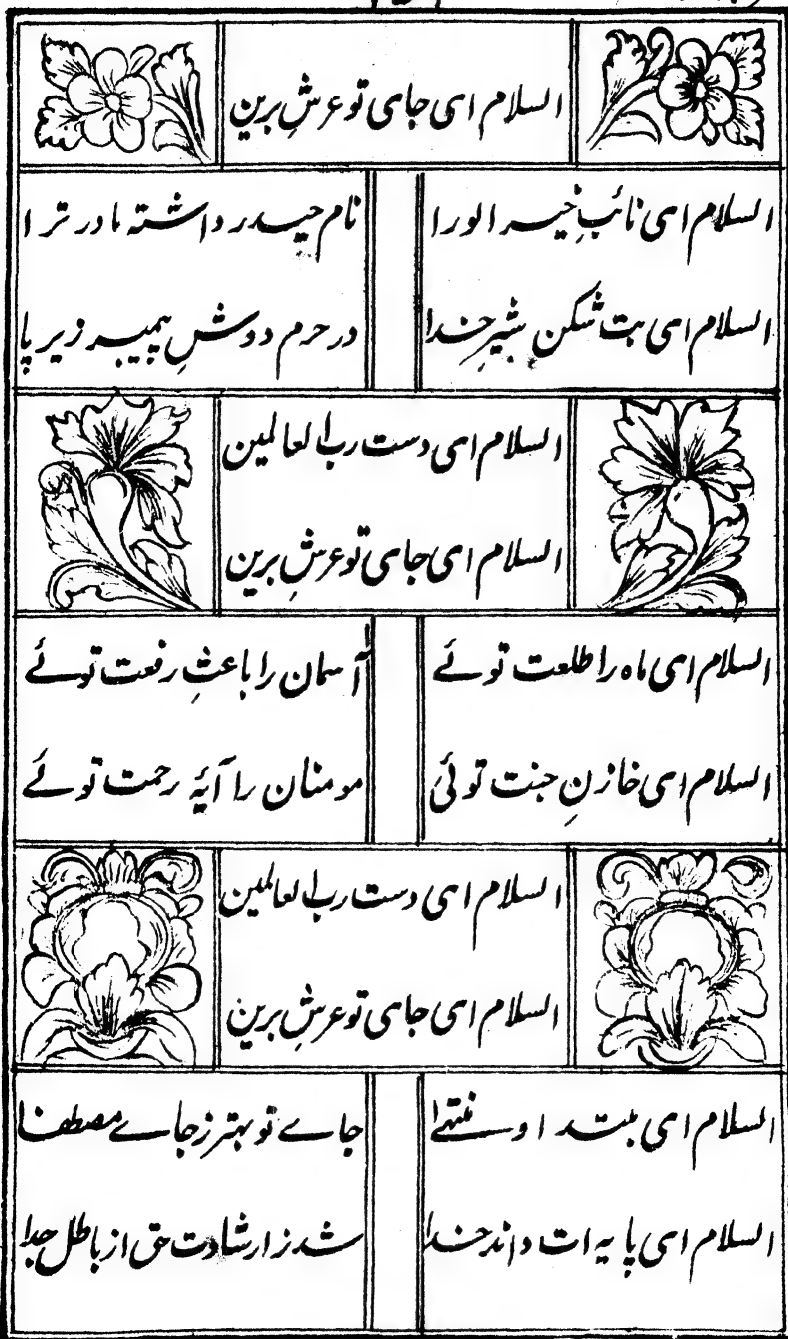 السلام ای جای تو عرشِ برین
السلام ای نائبِ خیر الورا
نام حیدر داشته مادر ترا
السلام ای بت شکن شیرِ خدا
در حرم دوشِ پیمبر زیر پا
السلام ای دست رب العالمین
السلام ای جای تو عرشِ برین
السلام ای ماه را طلعت توئے
آسمان را باعثِ رفعت توئے
السلام ای خازنِ جنت توئی
مومنان را آیۂ رحمت توئے
السلام ای دست رب العالمین
السلام ای جای تو عرشِ برین
السلام ای مبتدا و منتہٰی
جاے تو بهتر ز جاے مصطفا
السلام ای پایه ات داند خدا
شد ز ارشادت حق از باطل جدا